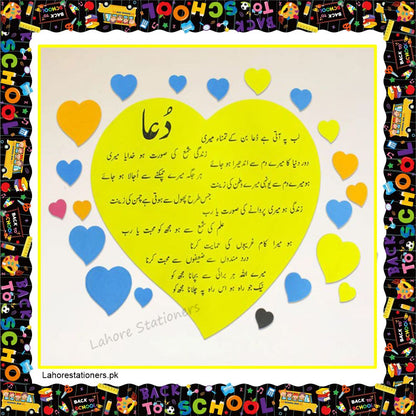 دُعا
لب پہ آتی ہے دُعا بن کے تمنا میری
زندگی شمع کی صورت ہو خدایا میری
دور دنیا کا میرے دم سے اندھیرا ہو جائے
ہر جگہ میرے چمکنے سے اُجالا ہو جائے
ہو میرے دم سے یونہی میرے وطن کی زینت
جس طرح پھول سے ہوتی ہے چمن کی زینت
زندگی ہو میری پروانے کی صورت یا رب
علم کی شمع سے ہو مجھ کو محبت یا رب
ہو میرا کام غریبوں کی حمایت کرنا
درد مندوں سے ضعیفوں سے محبت کرنا
میرے اللہ ہر برائی سے بچانا مجھ کو
نیک جو راہ ہو اس راہ پہ چلانا مجھ کو
Lahore Stationers
Lahorestationers.pk
BACK TO SCHOOL